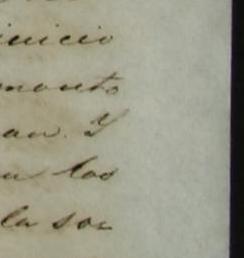 inicio
monto
an. Y
n los
la soc